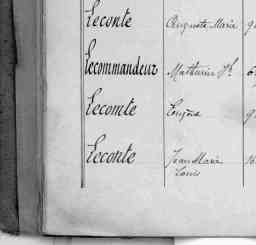 Leconte Auguste Marie
Lecommandeur Mathurin
Lecomte Eugène
Leconte Jean Marie
Louis